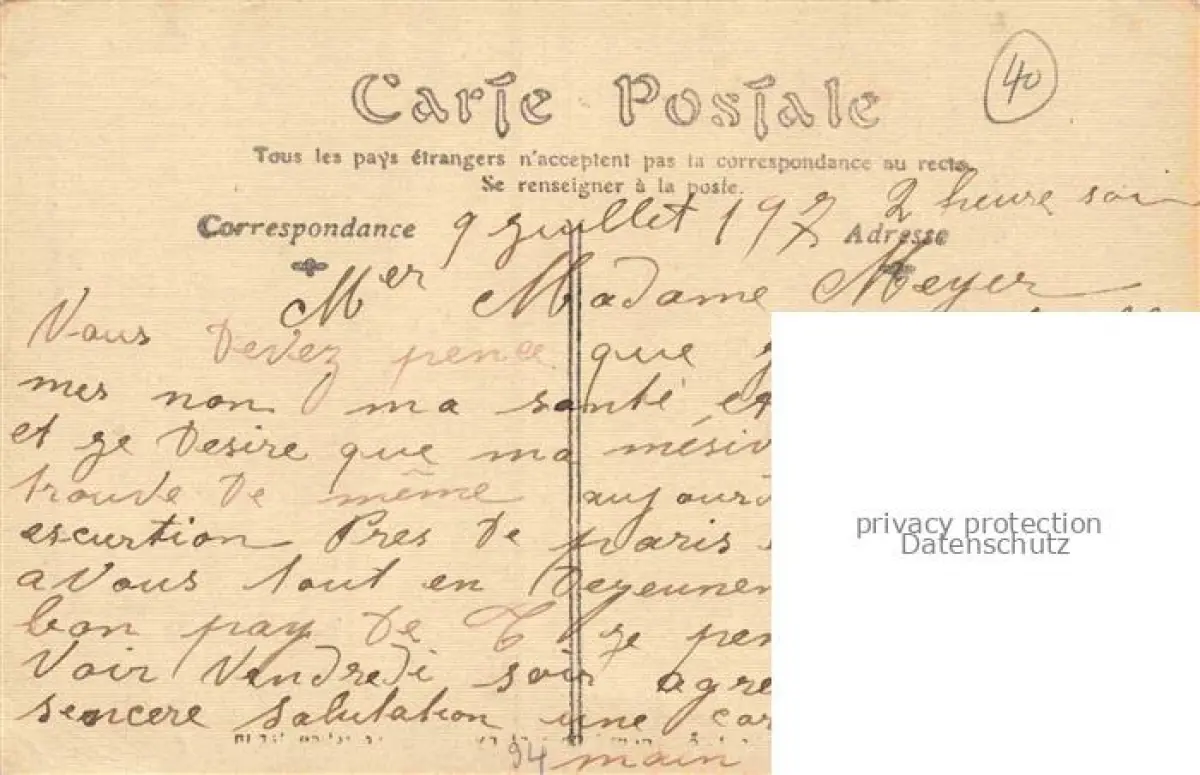 40
Carte Postale
Tous les pays étrangers n'acceptent pas la correspondance au recto.
Se renseigner à la poste.
Correspondance 9 juillet 197 2 heure soir Adresse
Mer Madame Meyer
Vous Devez pence que
mes non ma santé et
et ge Desire que ma
trouve De même aujour
escurtion Pres De paris
a Vous tout en Dezeuner
bon pay De ge pen
Voir Vendredi soir agre
sencere Salutation une car
94 main
privacy protection
Datenschutz